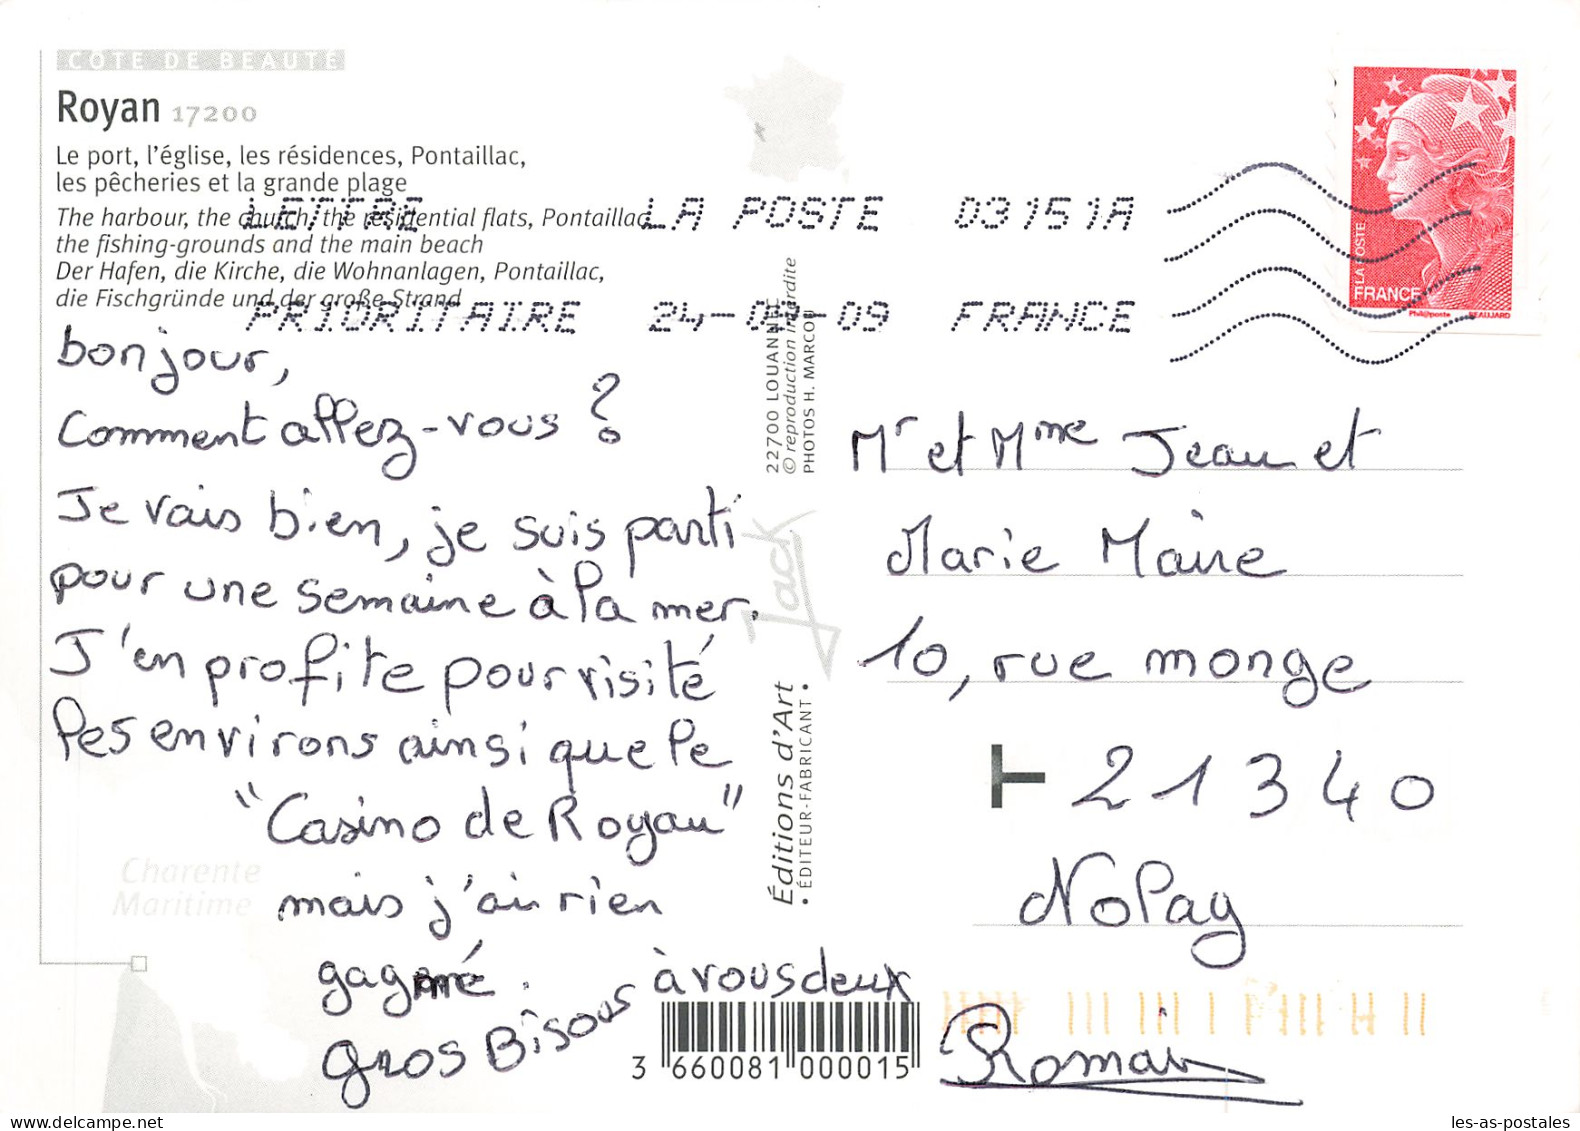 CÔTE DE BEAUTÉ
Royan 17200
Le port, l'église, les résidences, Pontaillac,
les pêcheries et la grande plage
The harbour, the church, the residential flats, Pontaillac,
the fishing-grounds and the main beach
Der Hafen, die Kirche, die Wohnanlagen, Pontaillac,
die Fischgründe und der große Strand
LETTRE LA POSTE 03151A
PRIORITAIRE 24-04-09 FRANCE
LA POSTE
FRANCE
Phil@poste BEAUJARD
bonjour,
Comment allez-vous ?
Je vais bien, je suis parti
pour une semaine à la mer.
J'en profite pour visité
les environs ainsi que le
"Casino de Royan"
mais j'ai rien
gagné.
gros Bisous à vous deux
Romain
22700 LOUANNEC
© reproduction interdite
PHOTOS H. MARCOU
Jack
Éditions d'Art
• ÉDITEUR-FABRICANT •
Mr et Mme Jean et
Marie Maire
10, rue monge
21340
Nolay
Charente
Maritime
3 660081 000015
les-as-postales
delcampe.net